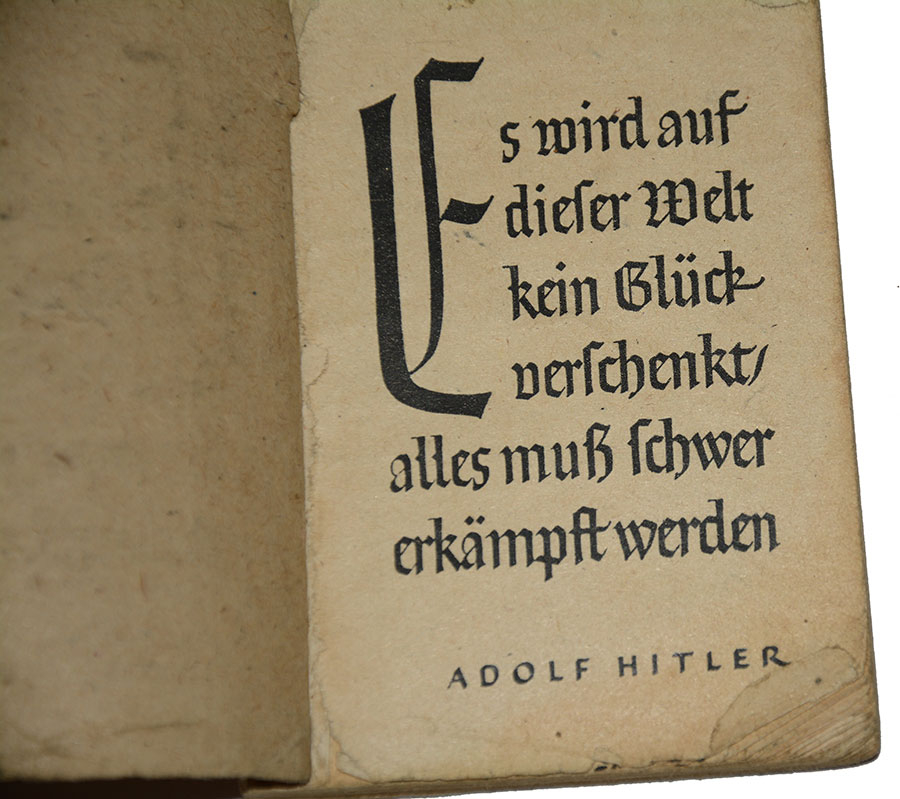 Es wird auf
dieſer Welt
kein Glück
verſchenkt/
alles muß ſchwer
erkämpft werden
ADOLF HITLER